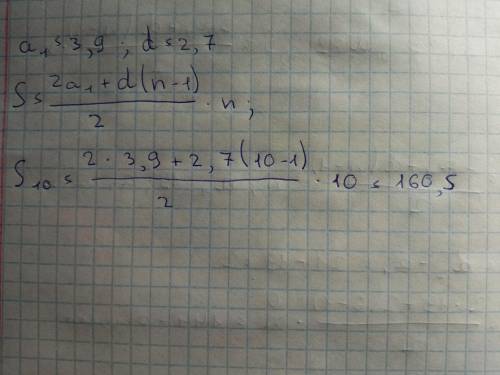 a₁ = 3,9 ; d = 2,7
S = (2a₁ + d(n-1))/2 · n ;
S₁₀ = (2 · 3,9 + 2,7(10-1))/2 · 10 = 160,5